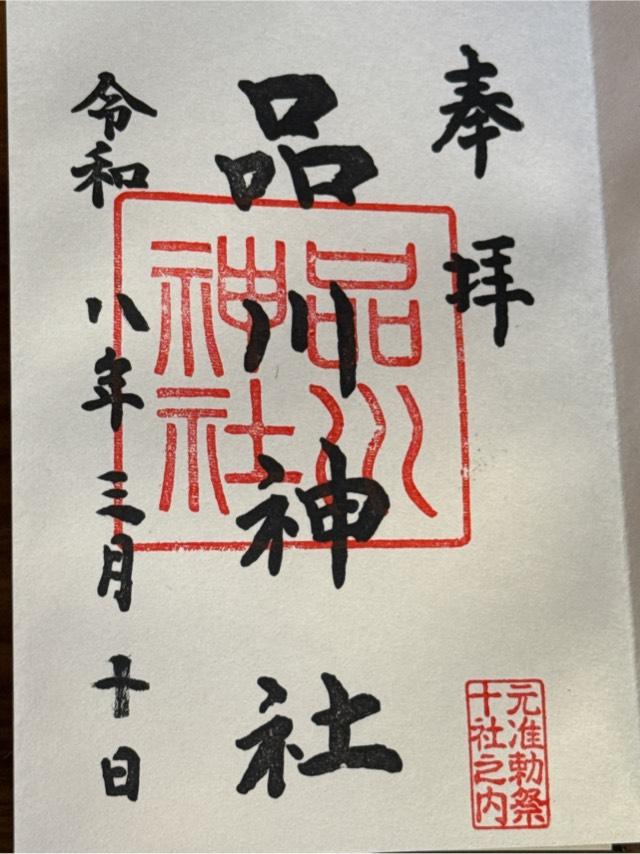 奉拝
品川神社
令和八年三月十日
品川
神社
元准勅祭
十社之内